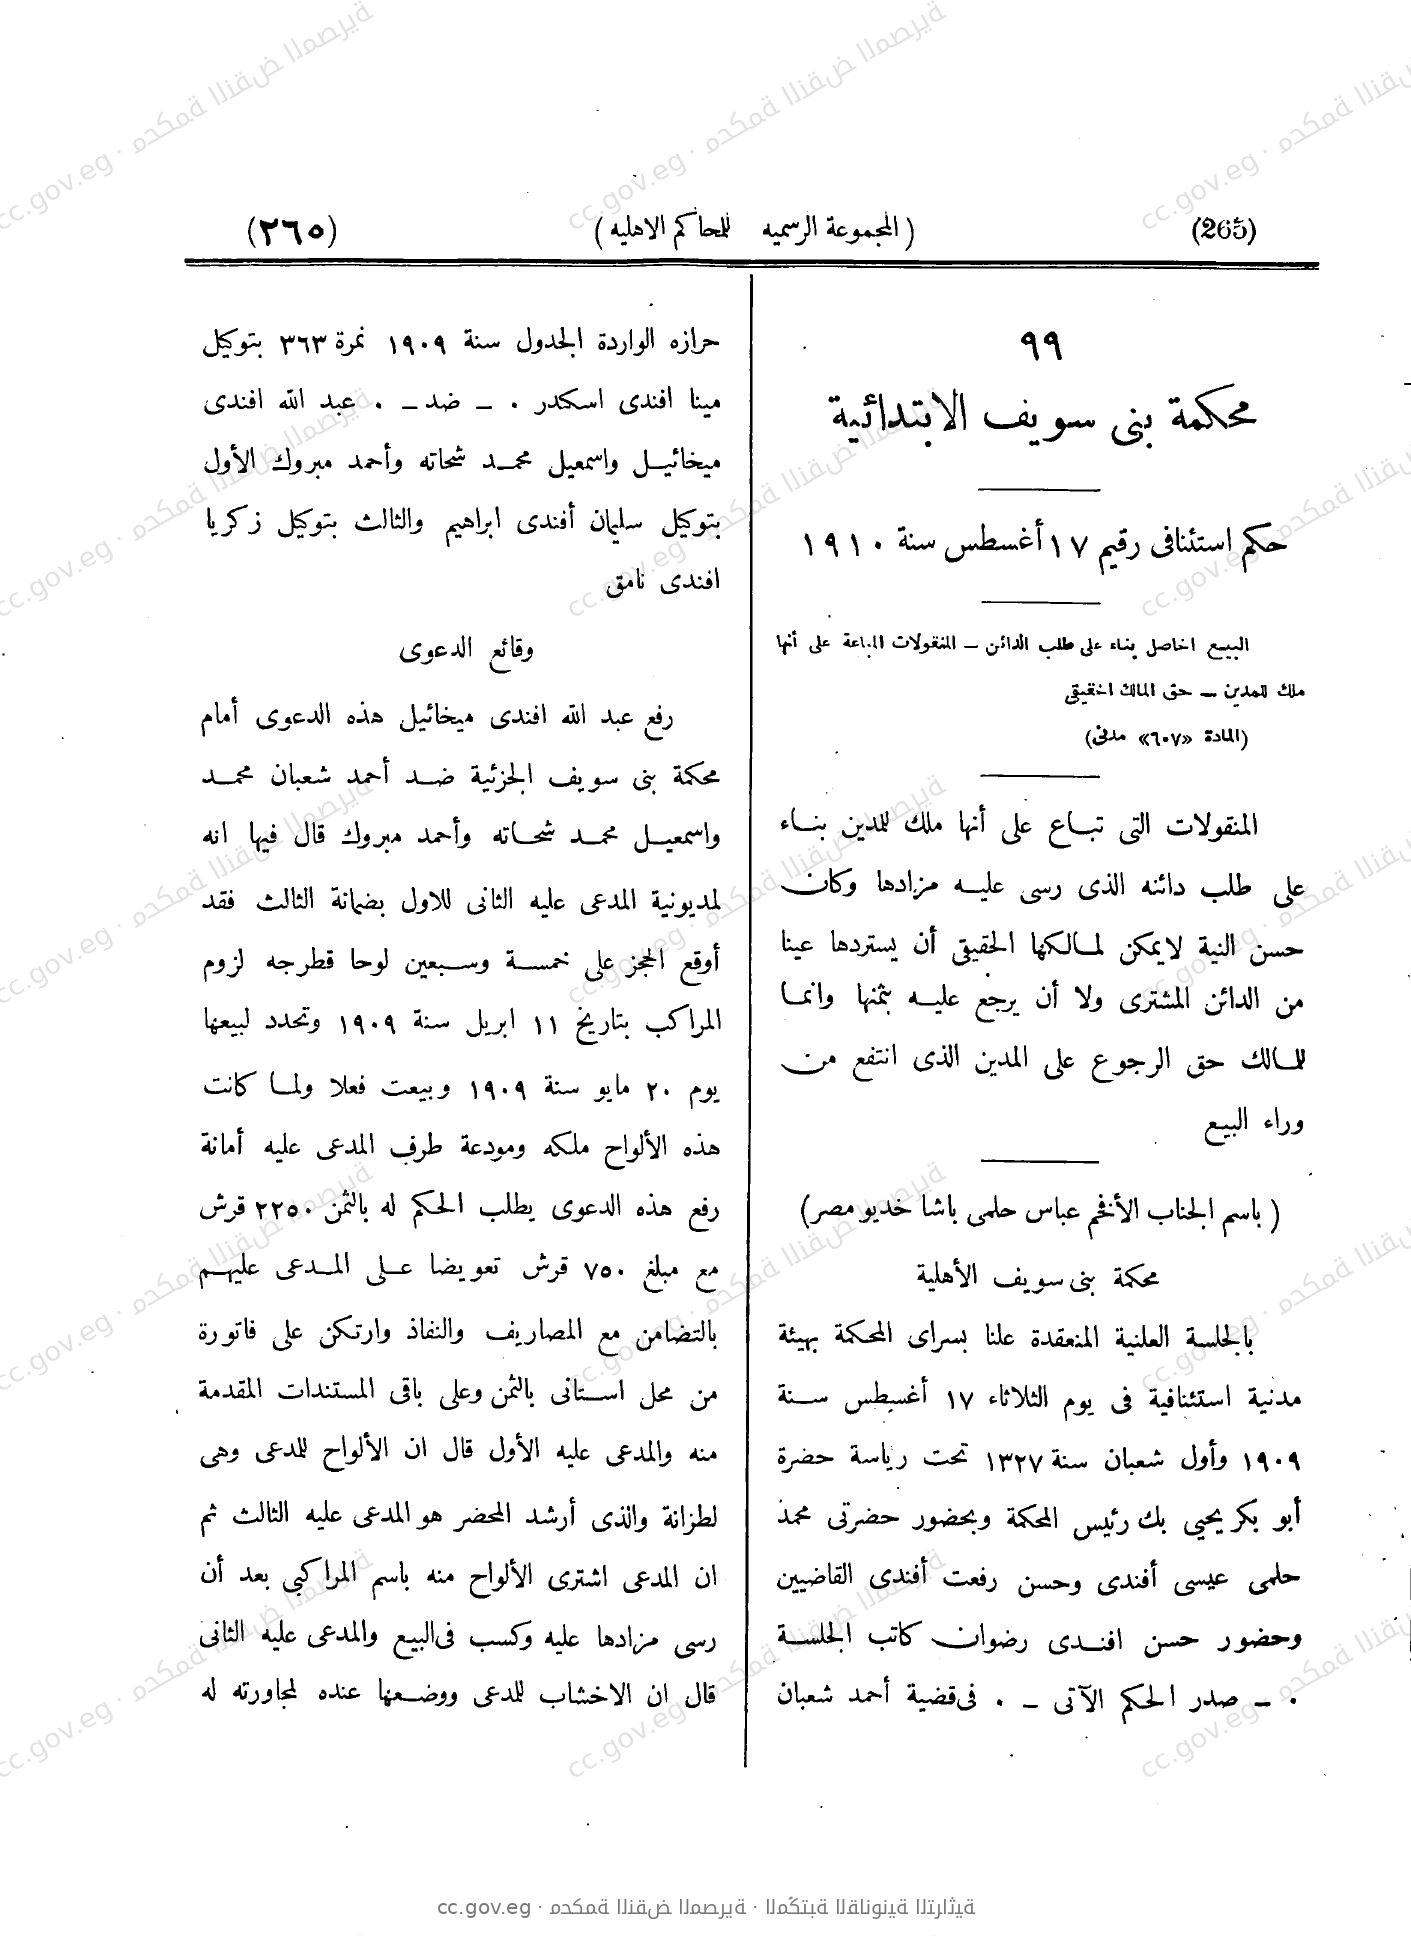 (265) ( المجموعة الرسميه للمحاكم الاهليه ) (٢٦٥)
٩٩
محكمة بنى سويف الابتدائية
حكم استئنافى رقيم ١٧ أغسطس سنة ١٩١٠
البيع الحاصل بناء على طلب الدائن ــ المنقولات المباعة على أنها
ملك للمدين ــ حق المالك الحقيقى
(المادة «٦٠٧» مدنى)
المنقولات التى تباع على أنها ملك للمدين بناء
على طلب دائنه الذى رسى عليه مزادها وكان
حسن النية لايمكن لمالكها الحقيقى أن يستردها عينا
من الدائن المشترى ولا أن يرجع عليه بثمنها وانما
للمالك حق الرجوع على المدين الذى انتفع من
وراء البيع
( باسم الجناب الأفخم عباس حلمى باشا خديو مصر )
محكمة بنى سويف الأهلية
بالجلسة العلنية المنعقدة علنا بسراى المحكمة بهيئة
مدنية استئنافية فى يوم الثلاثاء ١٧ أغسطس سنة
١٩٠٩ وأول شعبان سنة ١٣٢٧ تحت رياسة حضرة
أبو بكر يحيى بك رئيس المحكمة وبحضور حضرتى محمد
حلمى عيسى أفندى وحسن رفعت أفندى القاضيين
وحضور حسن افندى رضوان كاتب الجلسة
٠ ــ صدر الحكم الآتى ــ ٠ فى قضية أحمد شعبان
حرازه الواردة الجدول سنة ١٩٠٩ نمرة ٣٦٣ بتوكيل
مينا افندى اسكندر ٠ ــ ضد ــ ٠ عبد الله افندى
ميخائيل واسمعيل محمد شحاته وأحمد مبروك الأول
بتوكيل سليمان أفندى ابراهيم والثالث بتوكيل زكريا
افندى نامق
وقائع الدعوى
رفع عبد الله افندى ميخائيل هذه الدعوى أمام
محكمة بنى سويف الجزئية ضد أحمد شعبان محمد
واسمعيل محمد شحاته وأحمد مبروك قال فيها انه
لمديونية المدعى عليه الثانى للاول بضمانة الثالث فقد
أوقع الحجز على خمسة وسبعين لوحا قطرجه لزوم
المراكب بتاريخ ١١ ابريل سنة ١٩٠٩ وتحدد لبيعها
يوم ٢٠ مايو سنة ١٩٠٩ وبيعت فعلا ولما كانت
هذه الألواح ملكه ومودعة طرف المدعى عليه أمانة
رفع هذه الدعوى يطلب الحكم له بالثمن ٢٢٥٠ قرش
مع مبلغ ٧٥٠ قرش تعويضا على المدعى عليهم
بالتضامن مع المصاريف والنفاذ وارتكن على فاتورة
من محل استانى بالثمن وعلى باقى المستندات المقدمة
منه والمدعى عليه الأول قال ان الألواح للمدعى وهى
لطزانة والذى أرشد المحضر هو المدعى عليه الثالث ثم
ان المدعى اشترى الألواح منه باسم المراكبى بعد أن
رسى مزادها عليه وكسب فى البيع والمدعى عليه الثانى
قال ان الاخشاب للمدعى ووضعها عنده لمجاورته له
cc.gov.eg · محكمة النقض المصرية · المكتبة القانونية التراثية